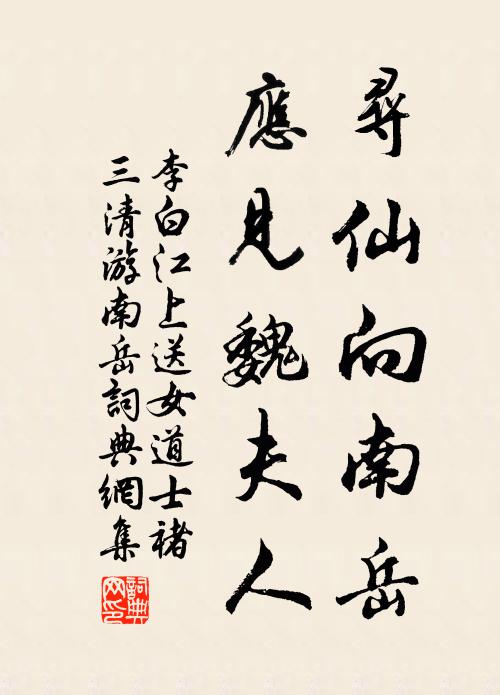 尋仙向南岳
應見魏夫人
李白江上送女道士褚
三清游南岳詞典網集
詞典網印